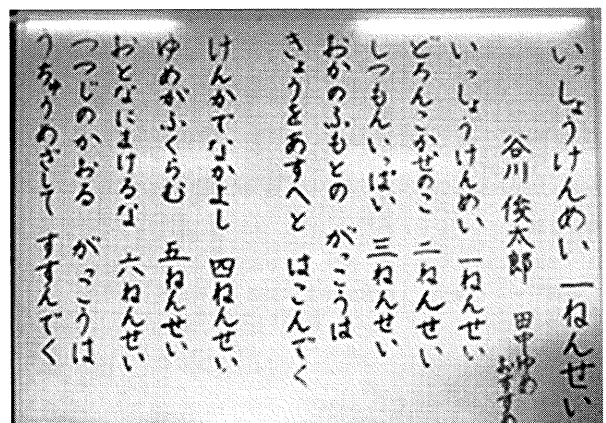 いっしょうけんめい 一ねんせい
谷川 俊太郎 田中ゆめ
いっしょうけんめい 一ねんせい
どろんこかぜのこ 二ねんせい
しつもんいっぱい 三ねんせい
おかのふもとの がっこうは
きょうをあすへと はこんでく
けんかでなかよし 四ねんせい
ゆめがふくらむ 五ねんせい
おとなにまけるな 六ねんせい
つつじのかおる がっこうは
うちゅうめざして すすんでく